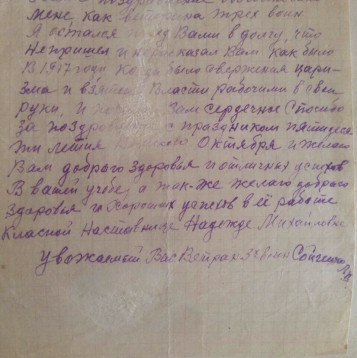 мене, как ветерана трех войн
Я остался перед Вами в долгу, что
не пришел и не рассказал Вам как было
В 1917 году, когда было свержения цари-
зма и взятей власти рабочими в свои
руки, и Вам сердечные спасибо
за поздровле с праздником пятидеся
ти летия Октября и желаю
Вам доброго здоровья и отличных успехов
В вашей учебе, а так-же желаю доброго
здаровья и хороших успехов в её работе
Класной Наставнице Надежде Михайловне
Уважаемый Вас Ветран